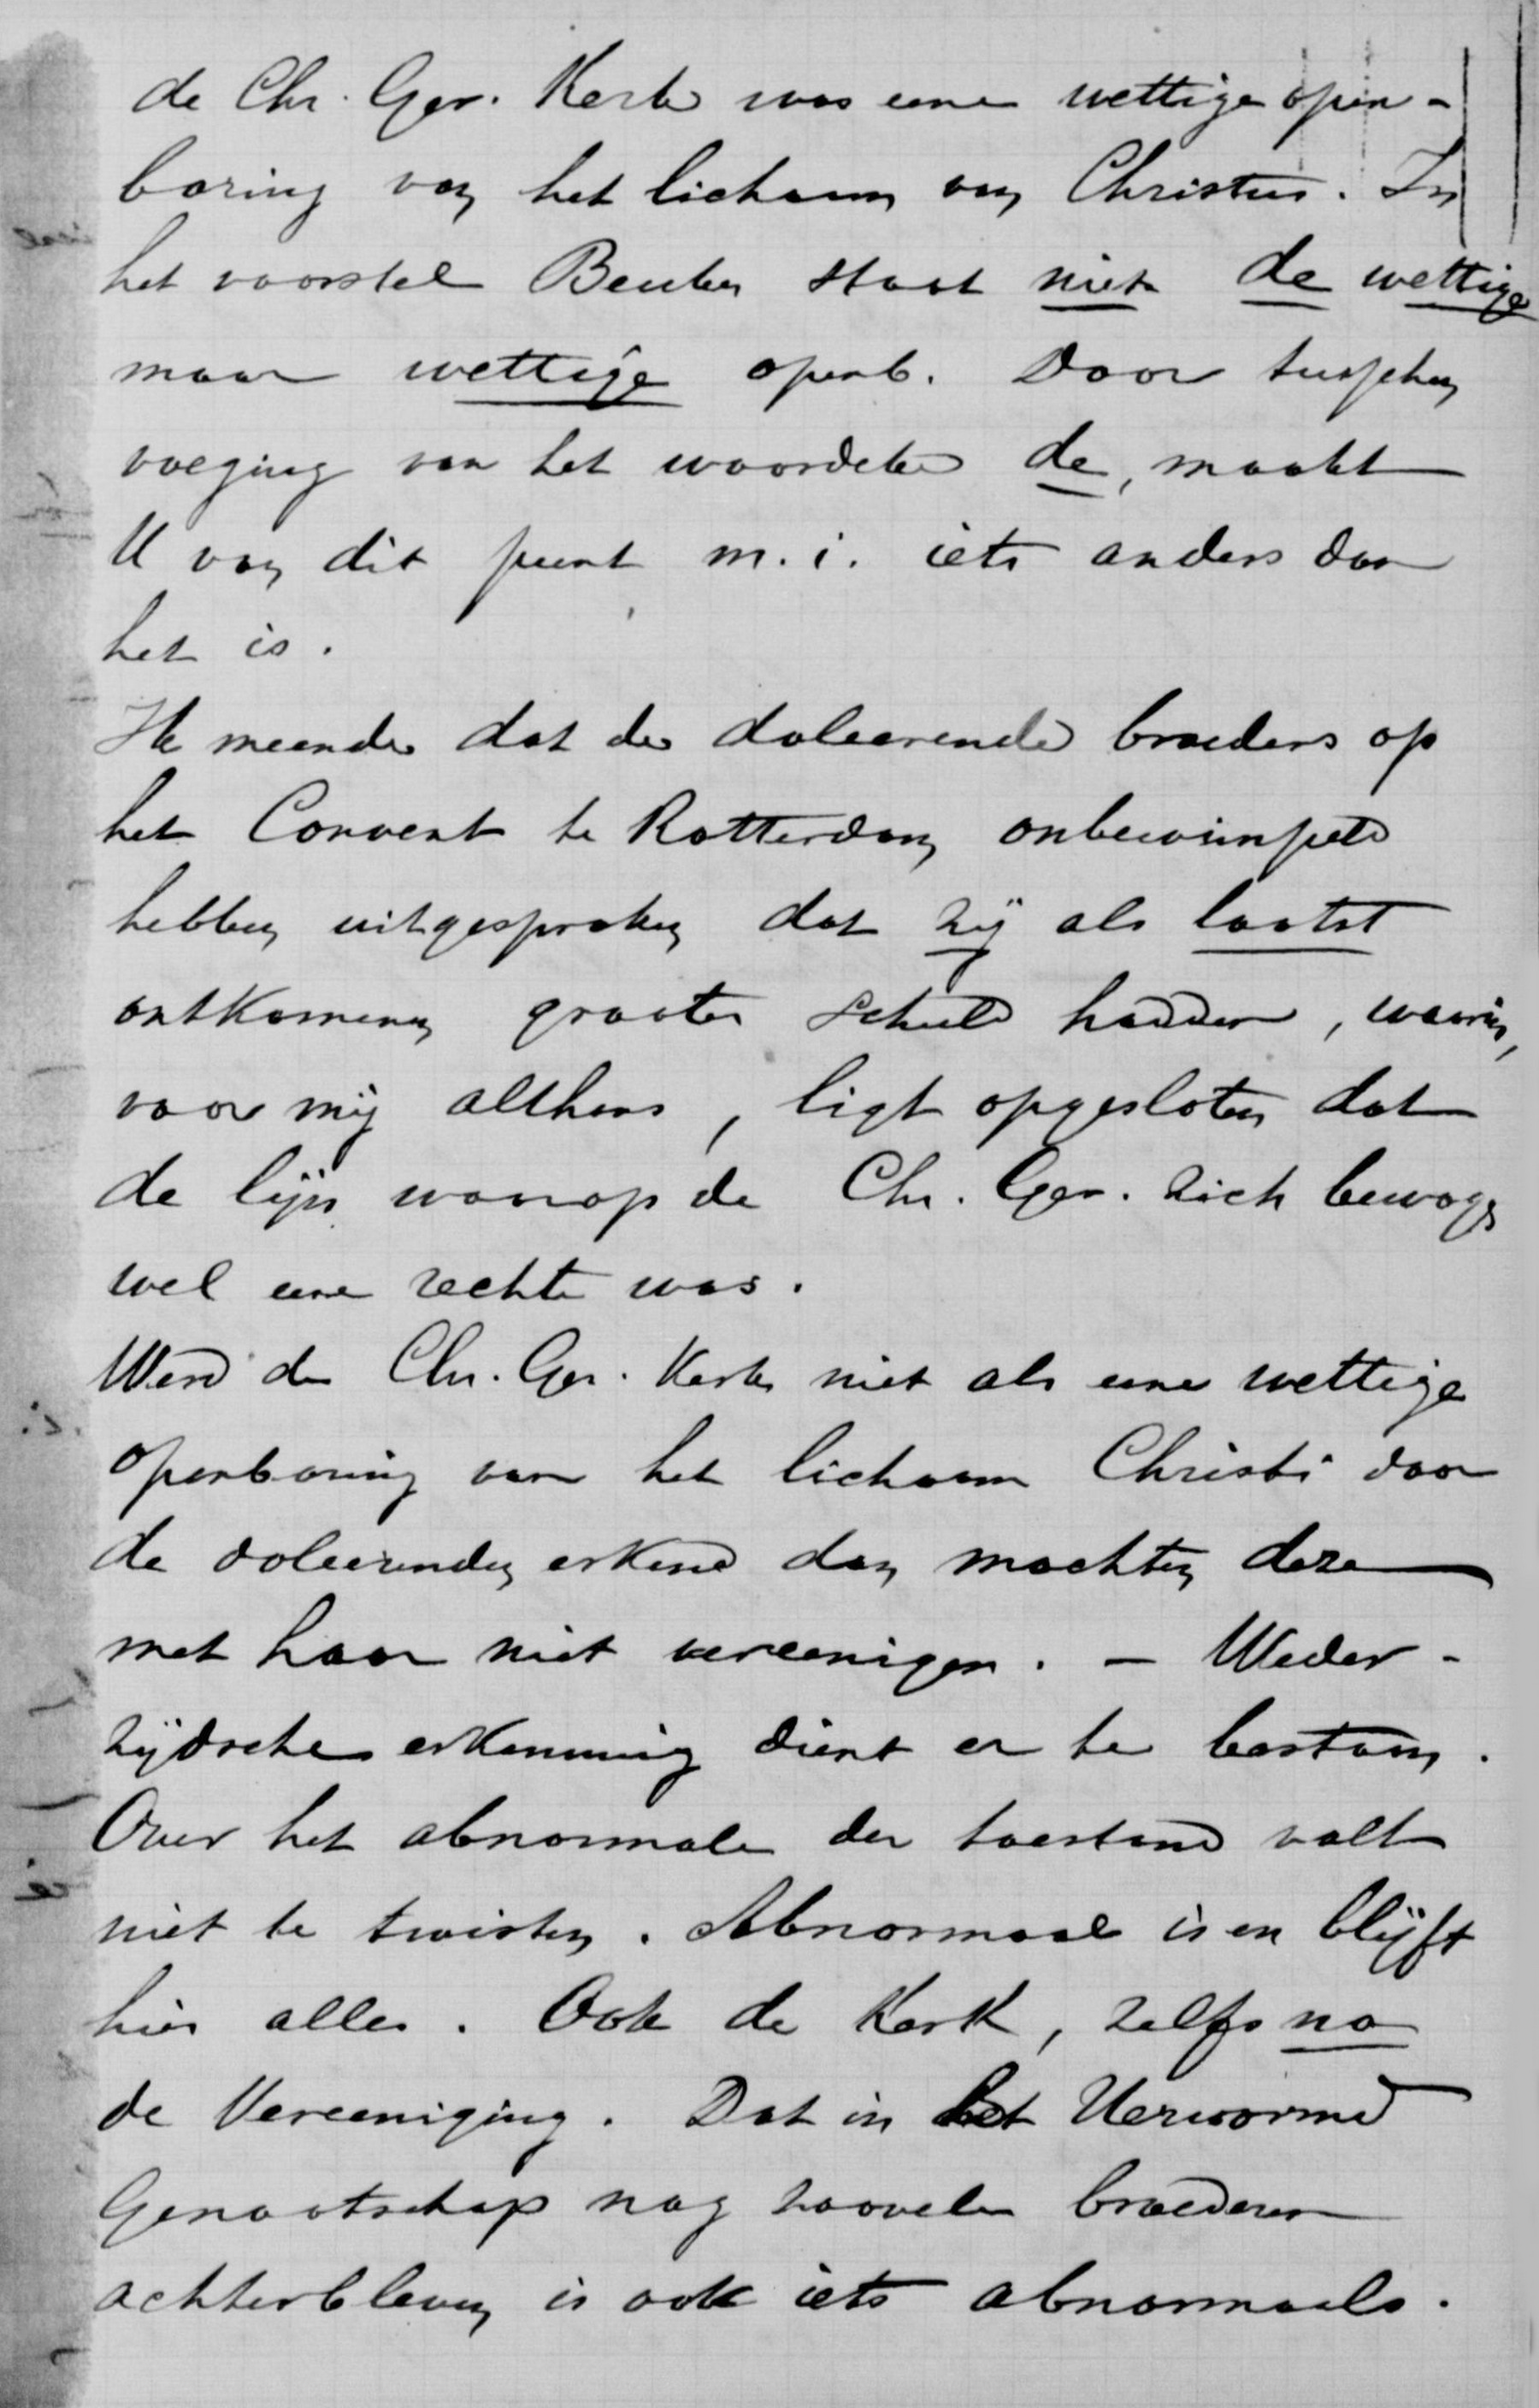 de Chr. Ger. Kerk was eene wettige open-
baring van het lichaam van Christus. In
het voorstel Beuker staat niet de wettige
maar wettige openb. Door tusschen
voeging van het woordeke de, maakt
U van dit punt m.i. iets anders dan
het is.
Ik meende dat de doleerende broeders op
het Convent te Rotterdam onbewimpeld
hebben uitgesproken dat zij als laatst
ontkomenen grooter schuld hadden, waarin,
voor mij althans, ligt opgesloten dat
de lijn waarop de Chr. Ger. zich bewogen
wel eene rechte was.
Werd de Chr. Ger. Kerk niet als eene wettige
openbaring van het lichaam Christi door
de doleerenden erkend dan mochten deze
met haar niet vereenigen. - Weder-
zijdsche erkenning dient er te bestaan.
Over het abnormale der toestand valt
niet te twisten. Abnormaal is en blijft
hier alles. Ook de Kerk, zelfs na
de Vereeniging. Dat in het Hervormd
Genootschap nog zoovele broederen
achterbleven is ook iets abnormaals.